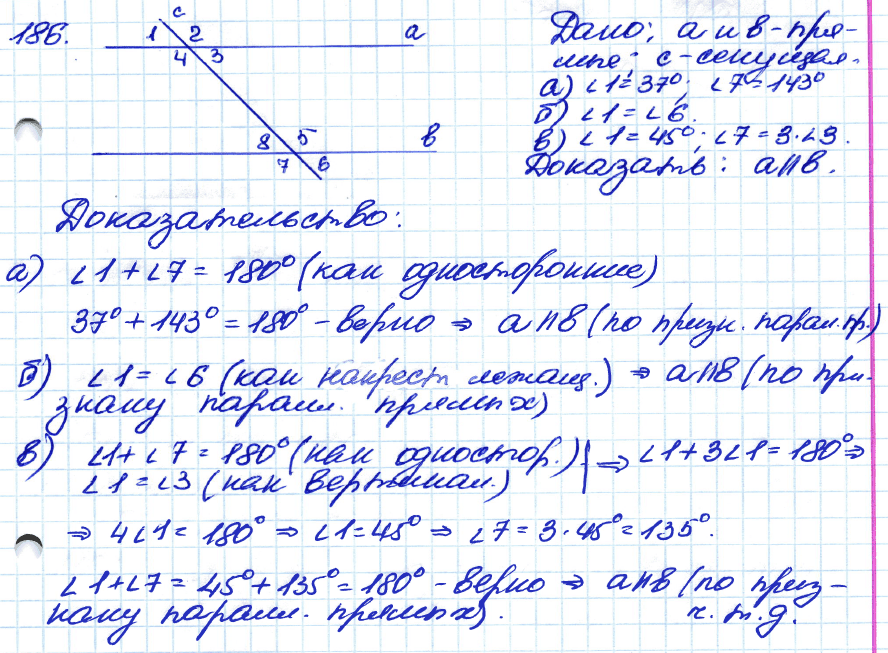 186.
c
1 2
4 3
a
8 5
7 6
в
Дано: a и в - пря-
мые; c - секущая.
а) ∠1 = 37°; ∠7 = 143°
б) ∠1 = ∠6.
в) ∠1 = 45°; ∠7 = 3·∠3.
Доказать: a||в.
Доказательство:
а) ∠1 + ∠7 = 180° (как односторонние)
37° + 143° = 180° - верно ⇒ a||в (по призн. парал. пр.)
б) ∠1 = ∠6 (как накрест лежащ.) ⇒ a||в (по при-
знаку паралл. прямых)
в) ∠1 + ∠7 = 180° (как одностор.) | ⇒ ∠1 + 3∠1 = 180° ⇒
∠1 = ∠3 (как вертикал.)
⇒ 4∠1 = 180° ⇒ ∠1 = 45° ⇒ ∠7 = 3·45° = 135°.
∠1 + ∠7 = 45° + 135° = 180° - верно ⇒ a||в (по приз-
наку паралл. прямых). ч.т.д.